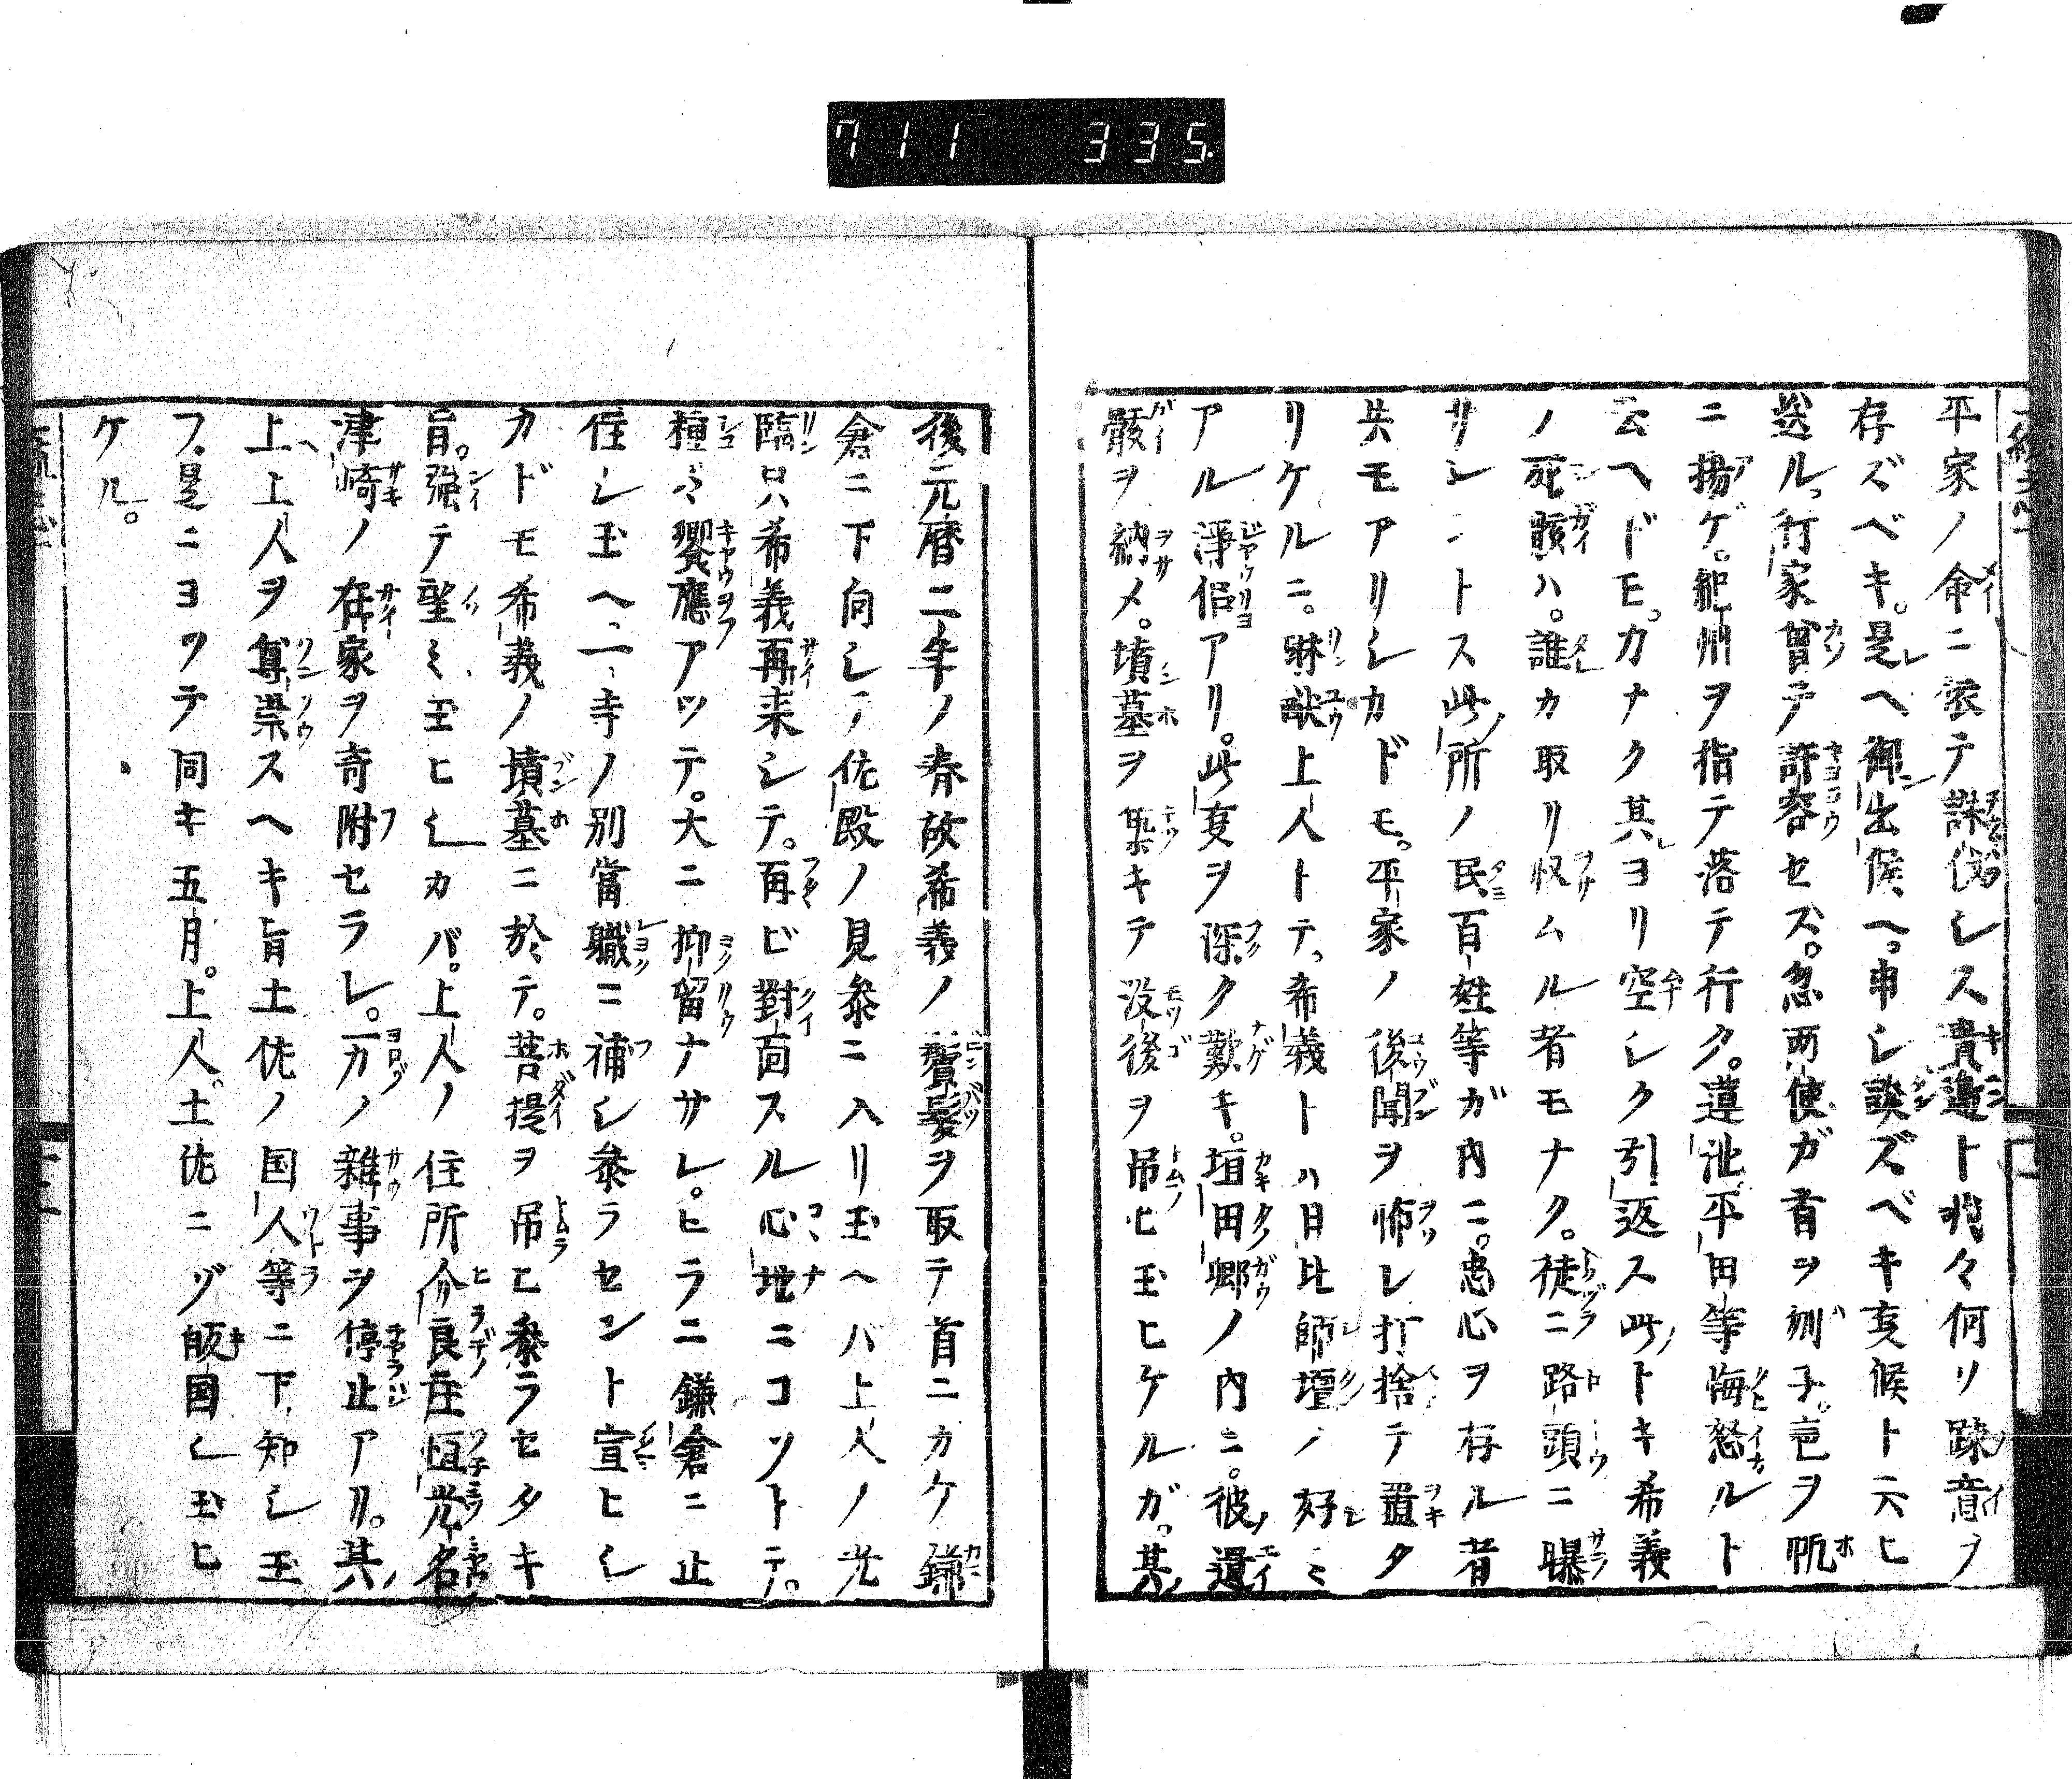 711 335
平家ノ命ニ依テ誅伐シス貴邉ト我々何ソ疎意ヲ
存ズベキ。是ヘ御出候ヘ。申シ談ズベキ叓候ト云ヒ
送ル。行家曽テ許容セズ。忽両使ガ首ヲ刎子。㠶ヲ帆
ニ揚ゲ。紀州ヲ指テ落テ行ク。蓮池。平田等悔怒ルト
云ヘドモ。カナク其ヨリ空シク引返ス此トキ希義
ノ死骸ハ。誰カ取リ収ムル者モナク。徒ニ路頭ニ曝
サレントス此所ノ民百姓等ガ内ニ。忠心ヲ存ル者
共モアリシカドモ。平家ノ後聞ヲ怖レ打捨テ置タ
リケルニ。琳猷上人トテ。希義トハ日比師壇ノ好ミ
アル浄侶アリ。此叓ヲ深ク歎キ。垣田郷ノ内ニ。彼遺
骸ヲ納メ。墳墓ヲ築キテ没後ヲ吊ヒ玉ヒケルガ。其
後元暦二年ノ春故希義ノ鬢髪ヲ取テ首ニカケ鎌
倉ニ下向シテ佐殿ノ見参ニ入リ玉ヘバ上人ノ光
臨只希義再来シテ。再ビ對面スル心地ニコソトテ。
種々饗應アツテ。大ニ抑留ナサレ。ヒラニ鎌倉ニ止
住シ玉ヘ、一寺ノ別當職ニ補シ参ラセント宣ヒシ
カドモ希義ノ墳墓ニ於テ。菩提ヲ吊ヒ参ラセタキ
旨。強テ望ミ玉ヒシカバ。上人ノ住所介良庄恒光名
津崎ノ在家ヲ寄附セラレ。万ノ雑事ヲ停止アリ。其
上上人ヲ尊崇スヘキ旨土佐ノ国人等ニ下知シ玉
フ。是ニヨツテ同キ五月。上人。土佐ニゾ皈国シ玉ヒ
ケル。